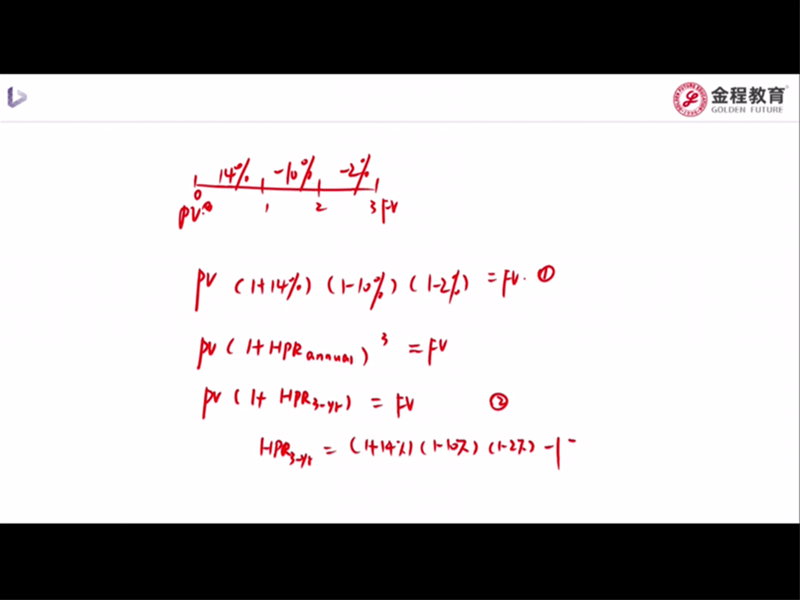 金程教育
GOLDEN FUTURE
14% -10% -2%
0 1 2 3 FV
PV
PV (1+14%) (1-10%) (1-2%) = FV. ①
PV (1+HPR annual)³ = FV
PV (1+ HPR 3-yr) = FV ②
HPR 3-yr = (1+14%) (1-10%) (1-2%) -1